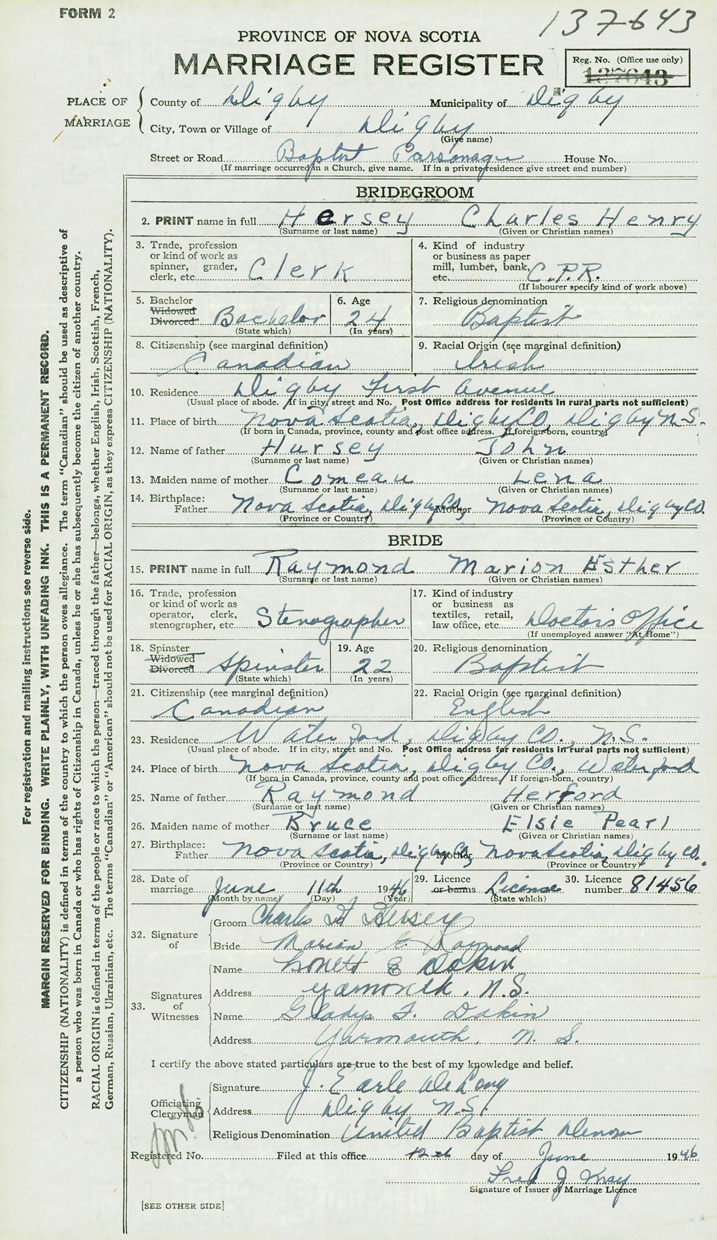 FORM 2
137643
PROVINCE OF NOVA SCOTIA
MARRIAGE REGISTER
Reg. No. (Office use only)
137643
PLACE OF MARRIAGE
County of Digby Municipality of Digby
City, Town or Village of Digby
(Give name)
Street or Road Baptist Parsonage House No.
(If marriage occurred in a Church, give name. If in a private residence give street and number)
BRIDEGROOM
2. PRINT name in full Hersey Charles Henry
(Surname or last name) (Given or Christian names)
3. Trade, profession or kind of work as spinner, grader, clerk, etc. Clerk
4. Kind of industry or business as paper mill, lumber, bank, etc. C.P.R.
(If labourer specify kind of work above)
5. Bachelor Widowed Divorced Bachelor
(State which)
6. Age 24
(In years)
7. Religious denomination
Baptist
8. Citizenship (see marginal definition)
Canadian
9. Racial Origin (see marginal definition)
Irish
10. Residence Digby First Avenue
(Usual place of abode. If in city, street and No. Post Office address for residents in rural parts not sufficient)
11. Place of birth Nova Scotia, Digby CO, Digby N.S.
(If born in Canada, province, county and post office address. If foreign-born, country)
12. Name of father Hursey John
(Surname or last name) (Given or Christian names)
13. Maiden name of mother Comeau Lena
(Surname or last name) (Given or Christian names)
14. Birthplace: Father Nova Scotia, Digby CO, Mother Nova Scotia, Digby CO.
(Province or Country) (Province or Country)
BRIDE
15. PRINT name in full Raymond Marion Esther
(Surname or last name) (Given or Christian names)
16. Trade, profession or kind of work as operator, clerk, stenographer, etc. Stenographer
17. Kind of industry or business as textiles, retail, law office, etc. Doctor's Office
(If unemployed answer "At Home")
18. Spinster Widowed Divorced Spinster
(State which)
19. Age 22
(In years)
20. Religious denomination
Baptist
21. Citizenship (see marginal definition)
Canadian
22. Racial Origin (see marginal definition)
English
23. Residence Waterford, Digby CO., N.S.
(Usual place of abode. If in city, street and No. Post Office address for residents in rural parts not sufficient)
24. Place of birth Nova Scotia, Digby CO., Waterford
(If born in Canada, province, county and post office address. If foreign-born, country)
25. Name of father Raymond Herford
(Surname or last name) (Given or Christian names)
26. Maiden name of mother Bruce Elsie Pearl
(Surname or last name) (Given or Christian names)
27. Birthplace: Father Nova Scotia, Digby CO, Mother Nova Scotia, Digby CO.
(Province or Country) (Province or Country)
28. Date of marriage June 11th 1946
(Month by name) (Day) (Year)
29. Licence or banns License
(State which)
39. Licence number 81456
32. Signature of
Groom Charles H Hersey
Bride Marion E Raymond
33. Signatures of Witnesses
Name E Dakin
Address Yarmouth, N.S.
Name Gladys F. Dakin
Address Yarmouth, N. S.
I certify the above stated particulars are true to the best of my knowledge and belief.
Officiating Clergyman
Signature J. Earle DeLong
Address Digby N.S.
Religious Denomination United Baptist Denom
Registered No. Filed at this office 12th day of June 1946
Fred J
Signature of Issuer of Marriage Licence
[SEE OTHER SIDE]
For registration and mailing instructions see reverse side.
MARGIN RESERVED FOR BINDING. WRITE PLAINLY, WITH UNFADING INK. THIS IS A PERMANENT RECORD.
CITIZENSHIP (NATIONALITY) is defined in terms of the country to which the person owes allegiance. The term "Canadian" should be used as descriptive of
a person who was born in Canada or who has rights of Citizenship in Canada, unless he or she has subsequently become the citizen of another country.
RACIAL ORIGIN is defined in terms of the people or race to which the person—traced through the father—belongs, whether English, Irish, Scottish, French,
German, Russian, Ukrainian, etc. The terms "Canadian" or "American" should not be used for RACIAL ORIGIN, as they express CITIZENSHIP (NATIONALITY).